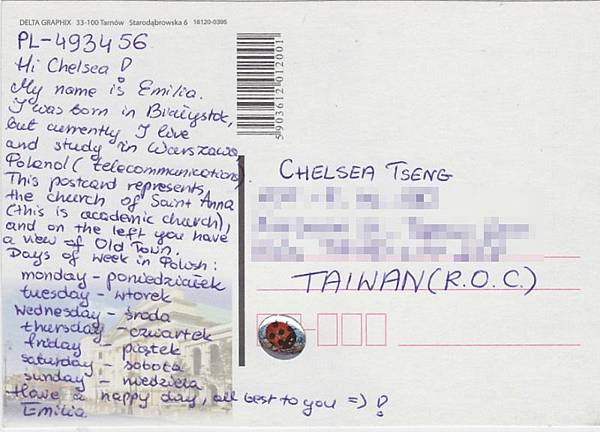 DELTA GRAPHIX 33-100 Tarnów Starodąbrowska 6 18120-0395
PL-493456
Hi Chelsea!
My name is Emilia.
I was born in Białystok,
but currently I live
and study in Warszawa,
Poland (telecommunications).
This postcard represents
the church of Saint Anna
(this is academic church),
and on the left you have
a view of Old Town.
Days of week in Polish:
monday - poniedziałek
tuesday - wtorek
wednesday - środa
thursday - czwartek
friday - piątek
saturday - sobota
sunday - niedziela
Have a happy day, all best to you =) !
Emilia
5903612012001
CHELSEA TSENG
TAIWAN (R.O.C.)